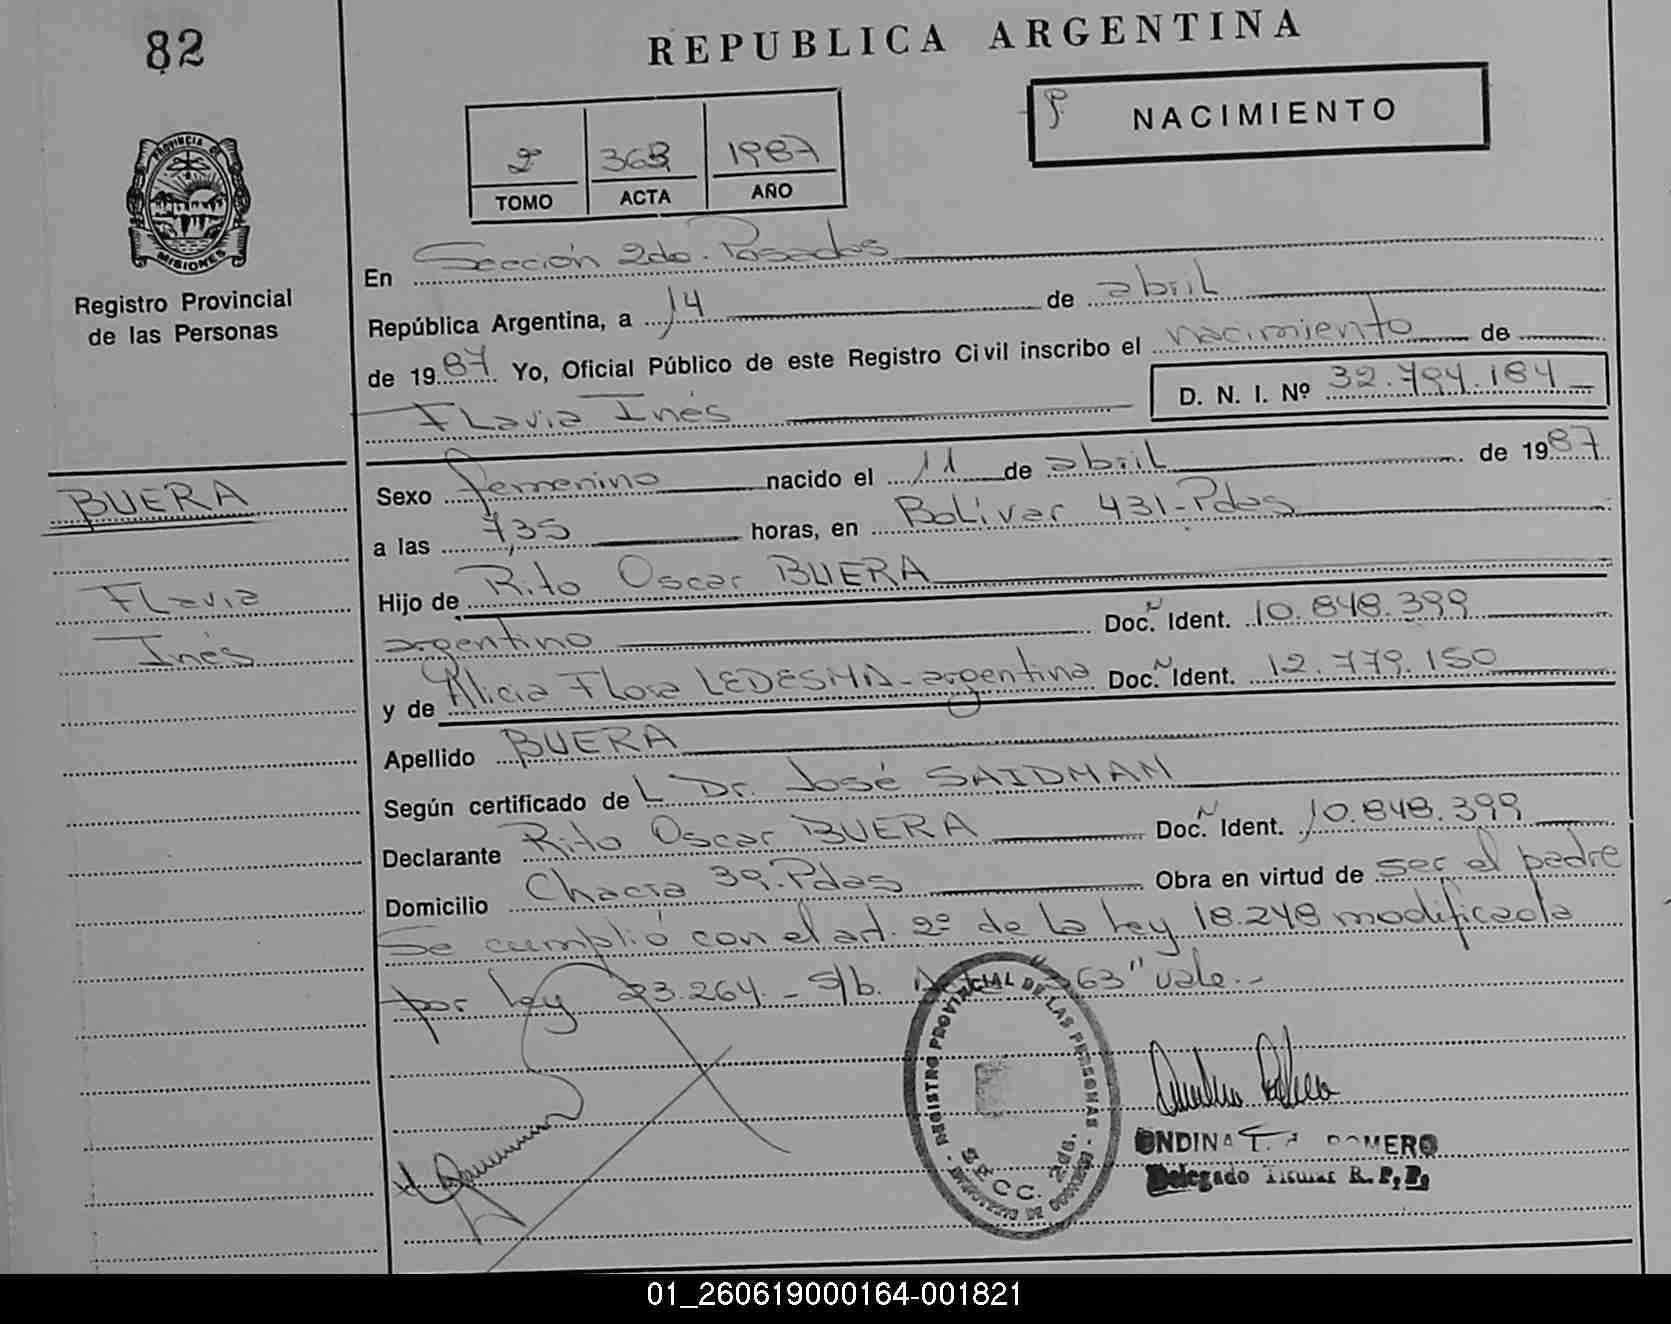 82
REPUBLICA ARGENTINA
PROVINCIA DE
MISIONES
Registro Provincial
de las Personas
2º 363 1987
TOMO ACTA AÑO
NACIMIENTO
En Sección 2da. Posadas
República Argentina, a 14 de abril
de 1987 Yo, Oficial Público de este Registro Civil inscribo el nacimiento de
Flavia Inés D. N. I. Nº 32.794.184
BUERA
Flavia
Inés
Sexo femenino nacido el 11 de abril de 1987
a las 7,35 horas, en Bolívar 431-Pdas
Hijo de Rito Oscar BUERA
argentino Doc. Ñ Ident. 10.848.399
y de Alicia Flora LEDESMA - argentina Doc. Ñ Ident. 12.779.150
Apellido BUERA
Según certificado de L Dr. José SAIDMAN
Declarante Rito Oscar BUERA Doc. Ñ Ident. 10.848.399
Domicilio Chacra 39. Pdas Obra en virtud de ser el padre
Se cumplió con el art. 2º de la ley 18.248 modificada
por ley 23.264.- S/b. 63" vale.-
REGISTRO PROVINCIAL DE LAS PERSONAS
SECC. 2da.
MINISTERIO DE GOBIERNO
ONDINA T. ROMERO
Delegado Titular R. P. P.
01_260619000164-001821